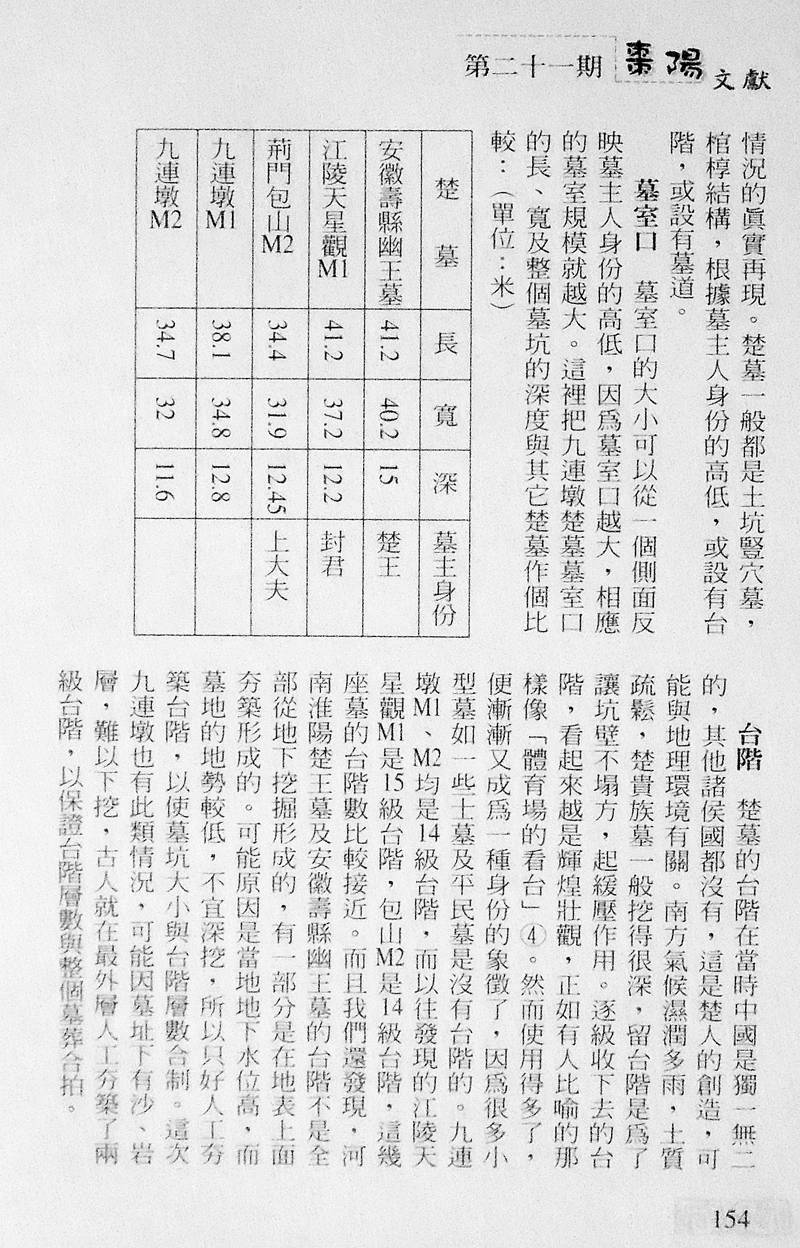 第二十一期 棗陽文獻
情況的眞實再現。楚墓一般都是土坑豎穴墓，
棺椁結構，根據墓主人身份的高低，或設有台
階，或設有墓道。
墓室口　墓室口的大小可以從一個側面反
映墓主人身份的高低，因爲墓室口越大，相應
的墓室規模就越大。這裡把九連墩楚墓墓室口
的長、寬及整個墓坑的深度與其它楚墓作個比
較：（單位：米）
楚墓 長 寬 深 墓主身份
安徽壽縣幽王墓 41.2 40.2 15 楚王
江陵天星觀M1 41.2 37.2 12.2 封君
荊門包山M2 34.4 31.9 12.45 上大夫
九連墩M1 38.1 34.8 12.8
九連墩M2 34.7 32 11.6
台階　楚墓的台階在當時中國是獨一無二
的，其他諸侯國都沒有，這是楚人的創造，可
能與地理環境有關。南方氣候濕潤多雨，土質
疏鬆，楚貴族墓一般挖得很深，留台階是爲了
讓坑壁不塌方，起緩壓作用。逐級收下去的台
階，看起來越是輝煌壯觀，正如有人比喻的那
樣像「體育場的看台」④。然而使用得多了，
便漸漸又成爲一種身份的象徵了，因爲很多小
型墓如一些士墓及平民墓是沒有台階的。九連
墩M1、M2均是14級台階，而以往發現的江陵天
星觀M1是15級台階，包山M2是14級台階，這幾
座墓的台階數比較接近。而且我們還發現，河
南淮陽楚王墓及安徽壽縣幽王墓的台階不是全
部從地下挖掘形成的，有一部分是在地表上面
夯築形成的。可能原因是當地地下水位高，而
墓地的地勢較低，不宜深挖，所以只好人工夯
築台階，以使墓坑大小與台階層數合制。這次
九連墩也有此類情況，可能因墓址下有沙、岩
層，難以下挖，古人就在最外層人工夯築了兩
級台階，以保證台階層數與整個墓葬合拍。
154